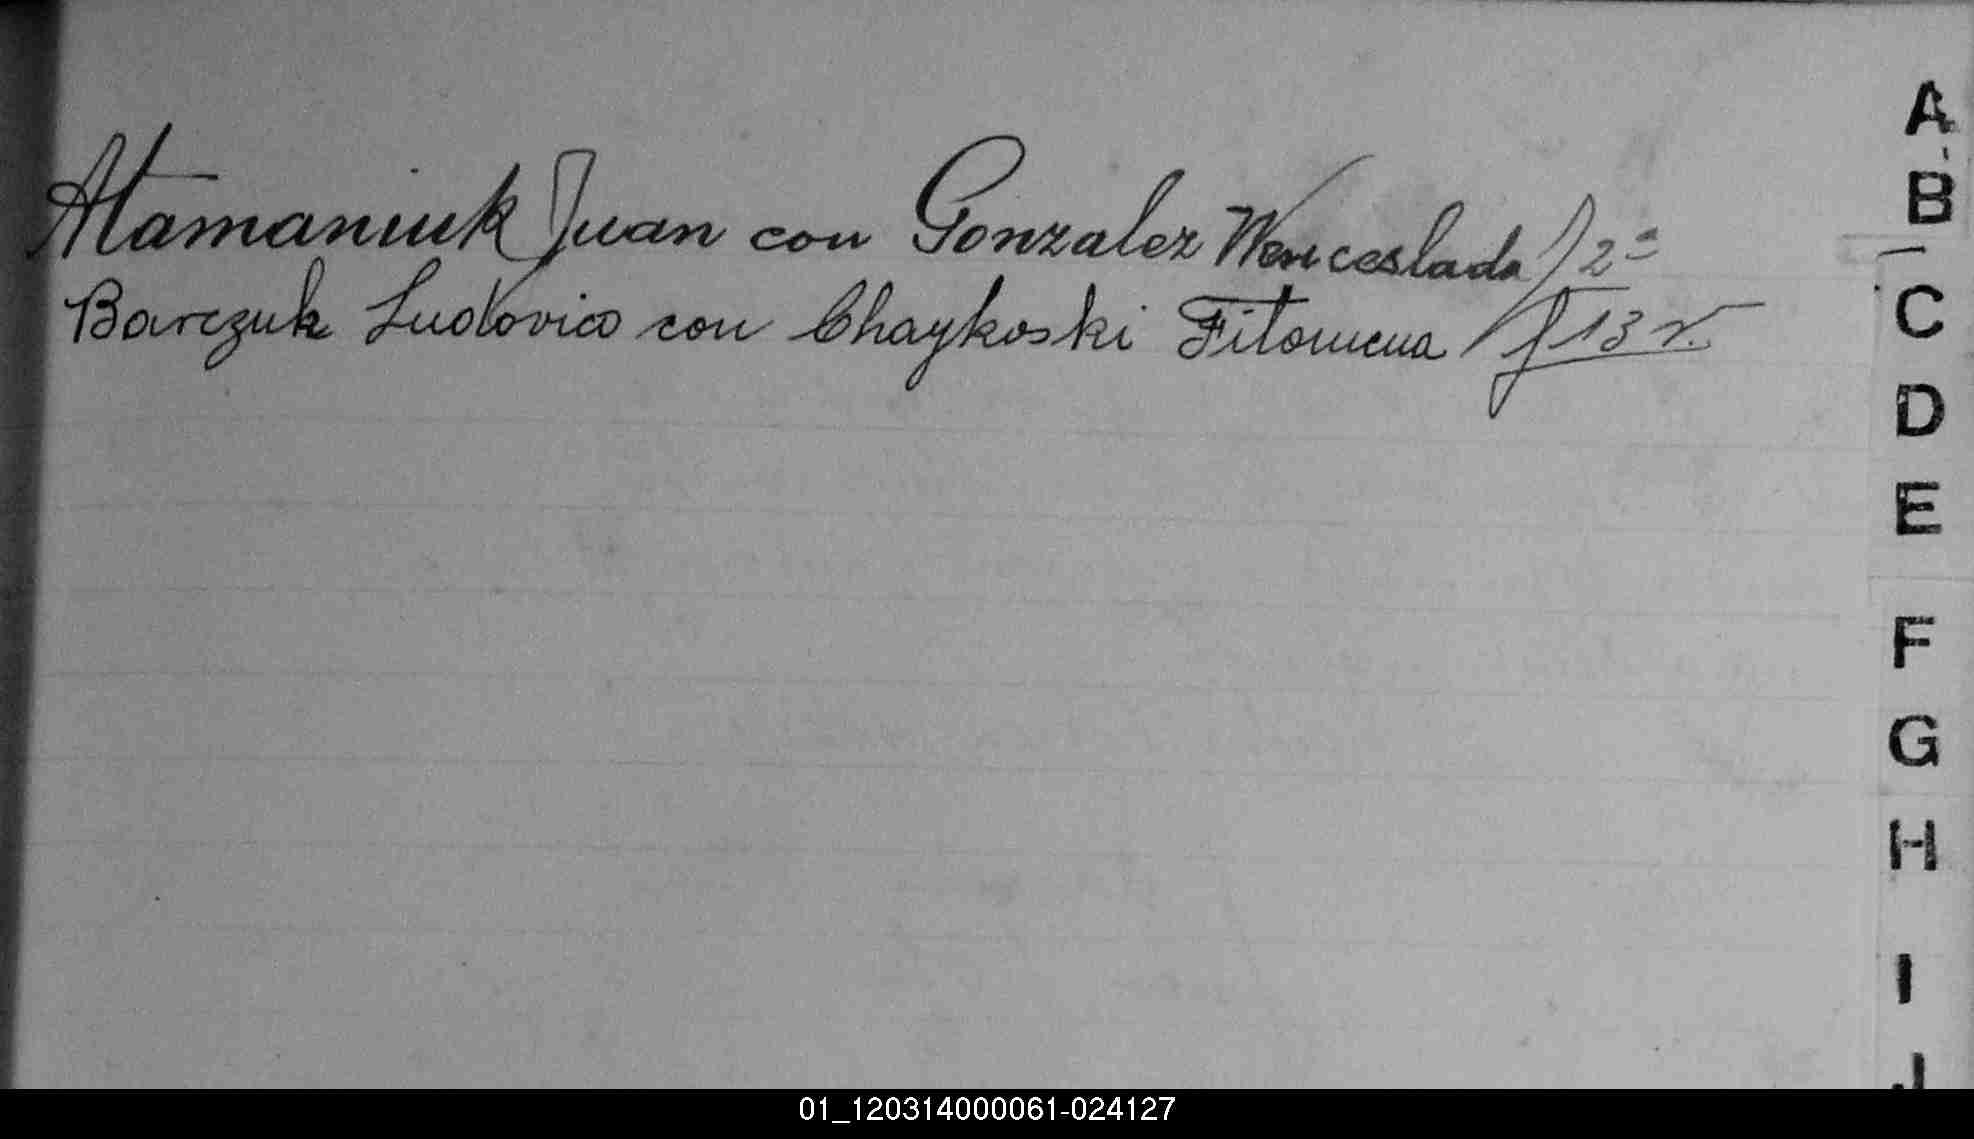 Atamaniuk Juan con Gonzalez Wenceslada / 2ª
Barczuk Ludovico con Chaykoski Filomena / f 13 v.
A
B
C
D
E
F
G
H
I
J
01_120314000061-024127